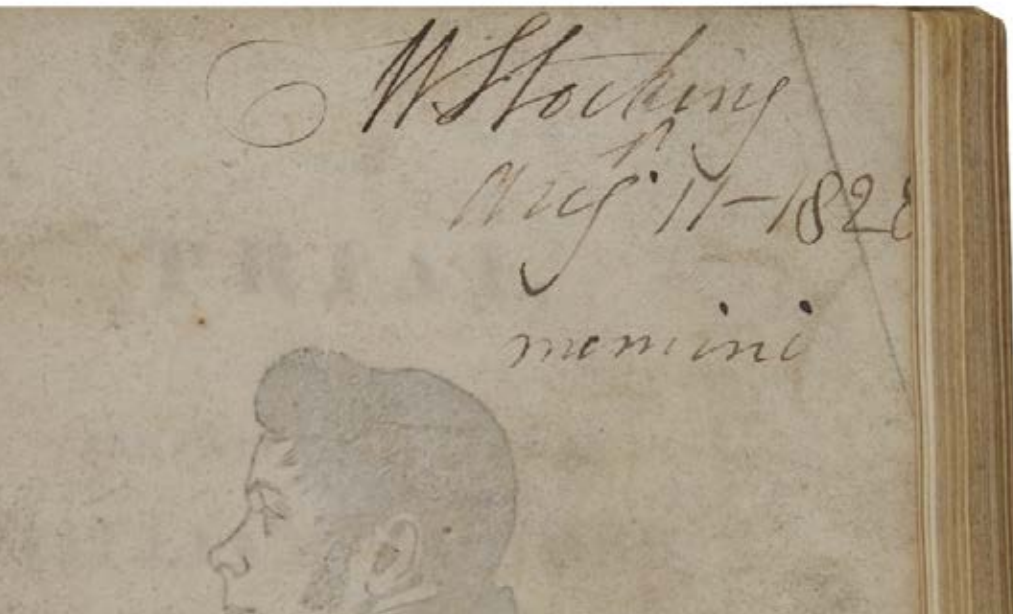 W Stocking
Augt. 11-1828
memini